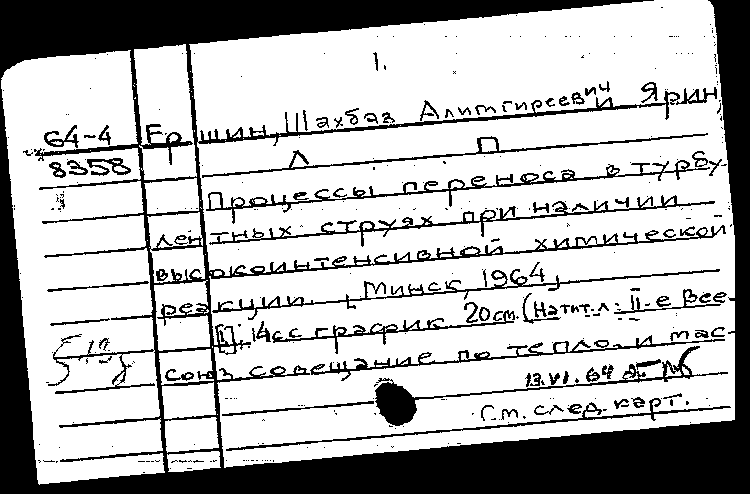 1.
64-4 Ершин, Шахбаз Алимгиреевич и Ярин,
8358 Л П
Процессы переноса в турбу-
лентных струях при наличии
высокоинтенсивной химической
реакции. [Минск, 1964]
[1], 14сс график 20см. (На тит. л: II-е Все-
союз совещание по тепло- и мас-
13.VI.64
См. след. карт.